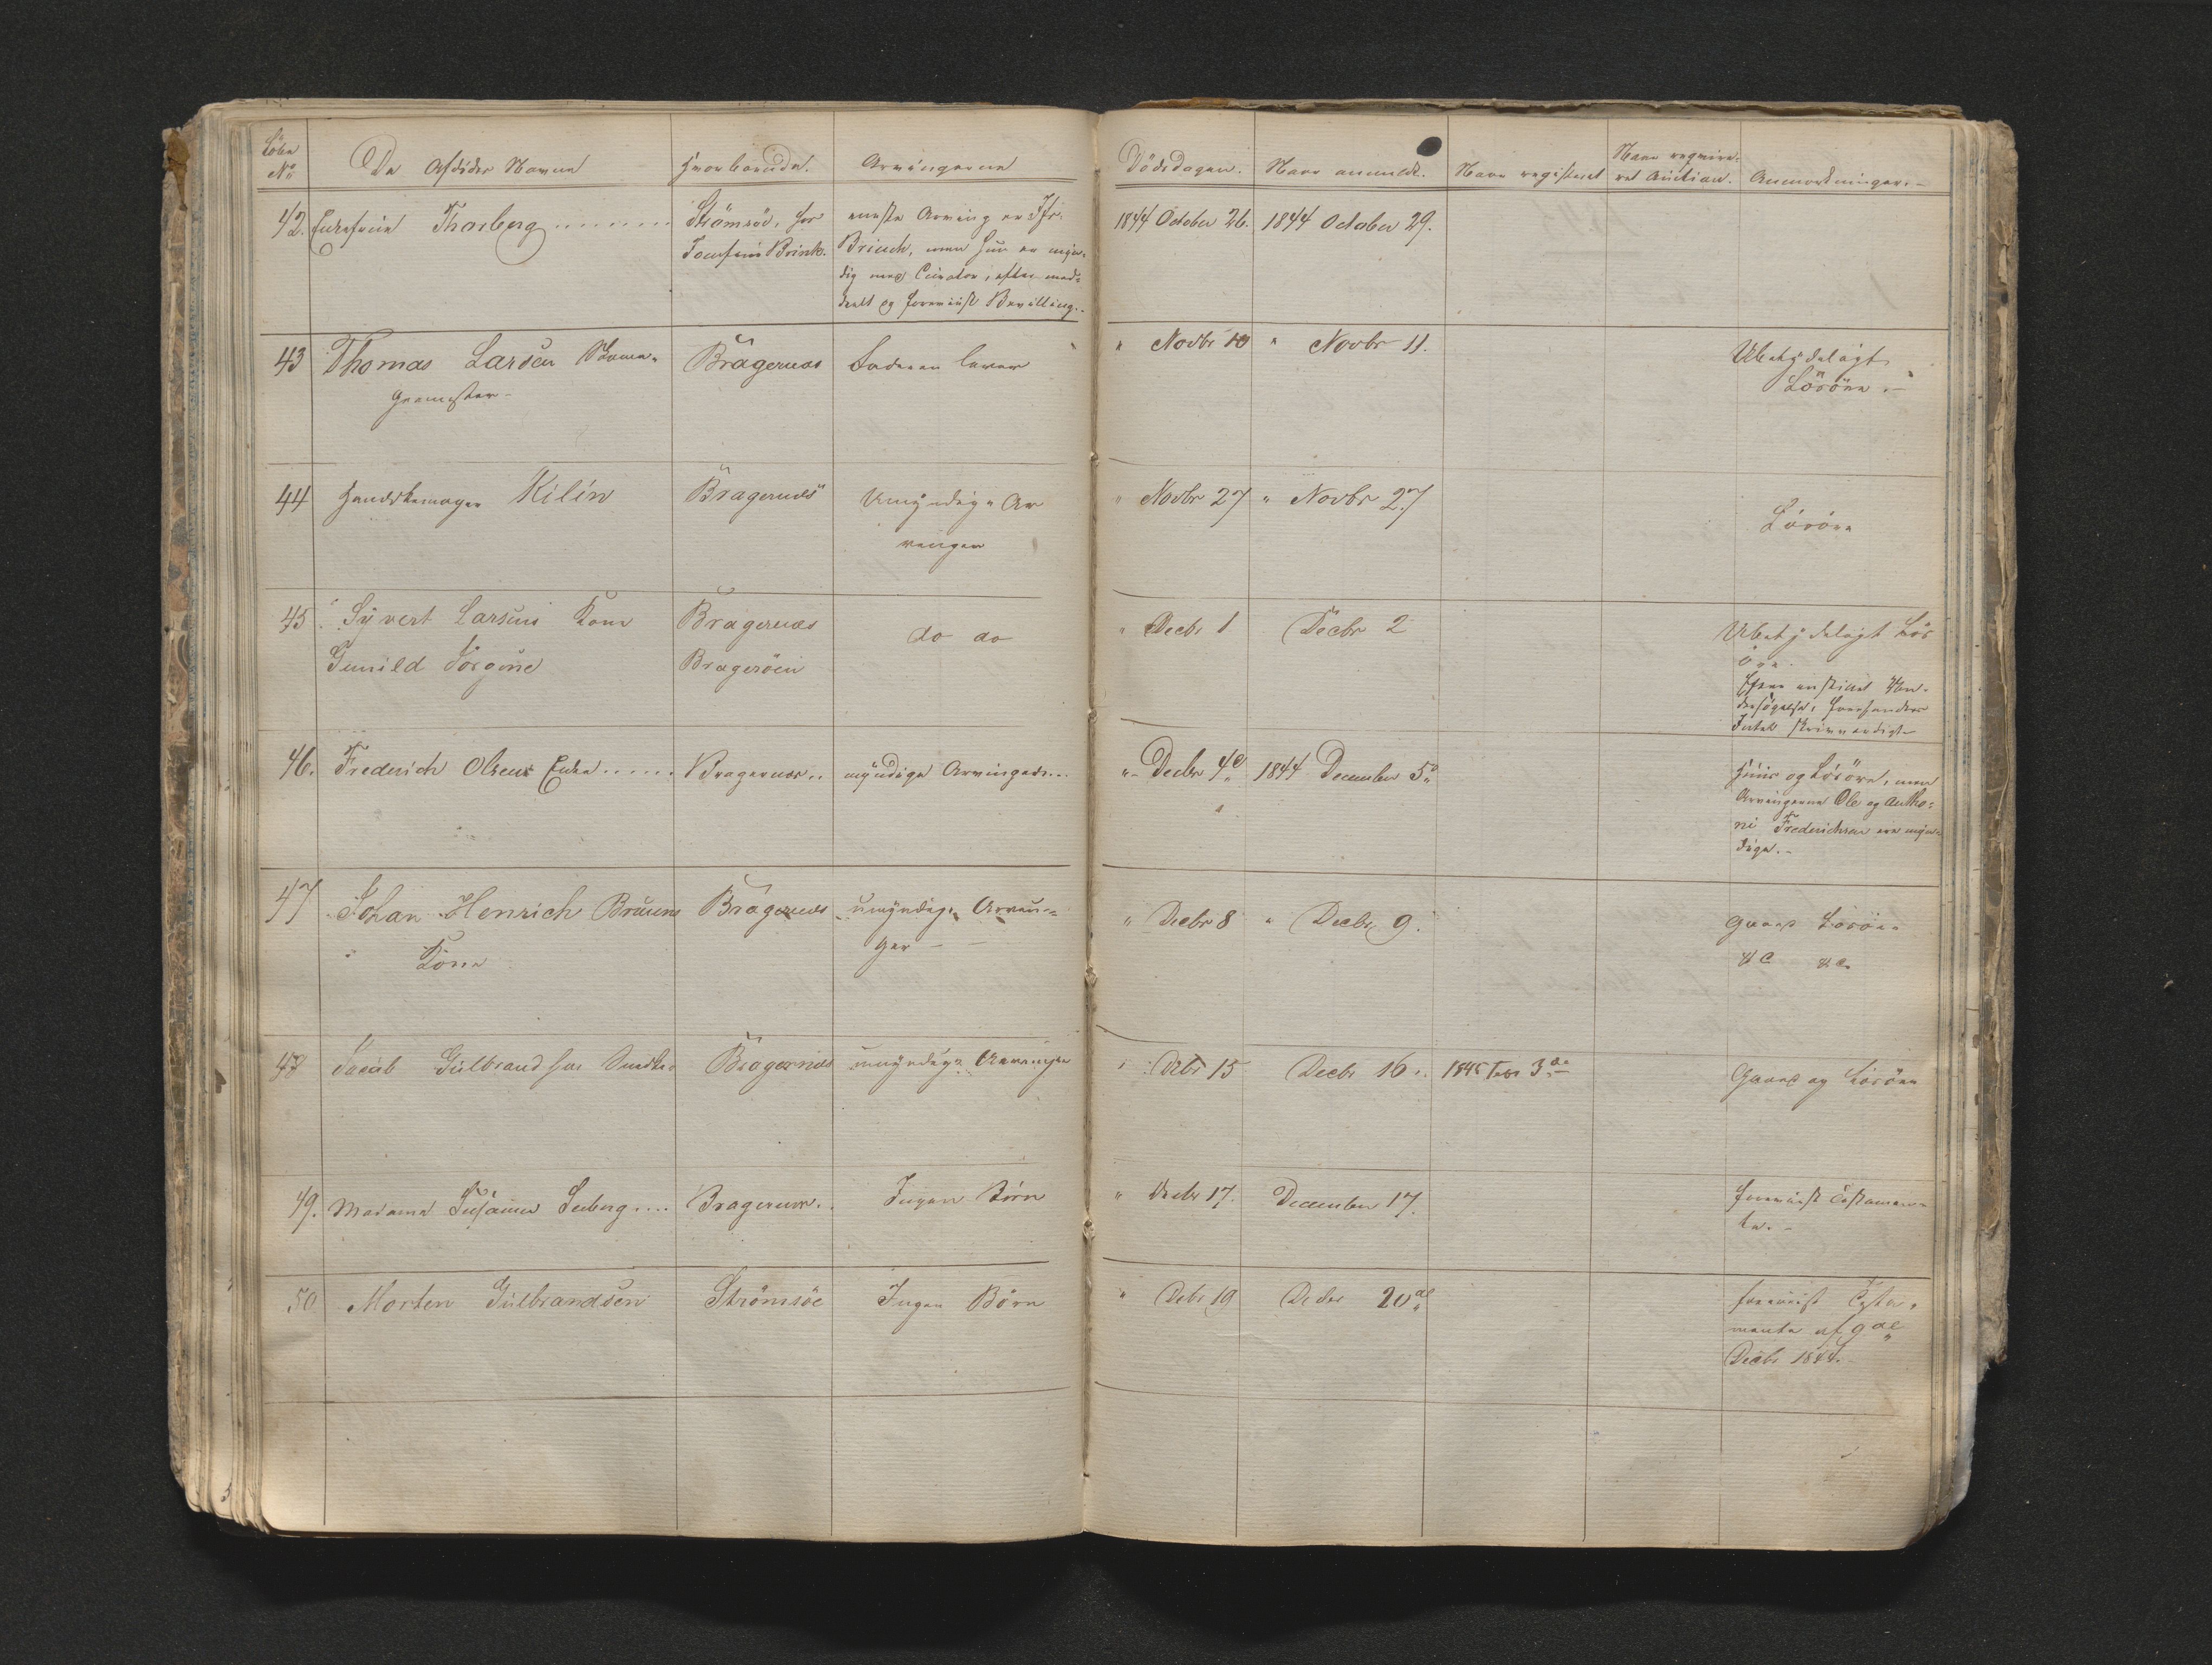 Löbe
No
De Afdödes Navne
Hvor boende.
Arvingerne
Dödsdagen.
Naar anmeldt.
Naar registeret
Naar reqvire-
ret Auction.
Anmærkninger.
42.
Thorberg
Strömsöe, hos
Brink.
eneste Arving er Jfr.
Brinch, men hun er myn-
dig med Curator, efter med-
deelt og foreviist Bevilling.
1844 October 26.
1844 October 29.
43
Thomas Larsen
Bragernæs
Faderen lever
" Novbr 10
" Novbr 11.
Ubetydeligt
Lösöre.
44
Handskemager Kilin
Bragernæs
Umyndige Ar
vinger
" Novbr 27
" Novbr 27
Lösöre
45
Syvert Larsens Kone
Gunild Jörgine
Bragernæs
Brageröen
do do
" Decbr 1
Decbr 2
Ubetydeligt Lös
öre.
Efter anstillet Un-
dersögelse, forefandtes
Intet skriveværdigt
46.
Frederich Olsens Enke
Bragernæs
myndige Arvinger
" Decbr 4de
1844 December 5
Huus og Lösöre, men
Arvingerne Ole og Antho-
ni Frederichsen ere myn-
dige.
47
Johan Henrich Bruuns
Kone
Bragernæs
umyndige Arvin-
ger
" Decbr 8
" Decbr 9.
Gaard Lösöre
&c &c
48
Jacob Gulbrandsen
Bragernæs
umyndige Arvinger
" Decbr 15
Decbr 16
1845 Febr 3de
Gaard og Lösöre
49.
Madame Susanne Seeberg
Bragernæs.
Ingen Börn
" Decbr 17.
December 17.
foreviist Testamen-
te.
50
Morten Gulbrandsen
Strömsöe
Ingen Börn
" Decbr 19
Decbr 20de
foreviist Testa-
mente af 9de
Decbr 1844.